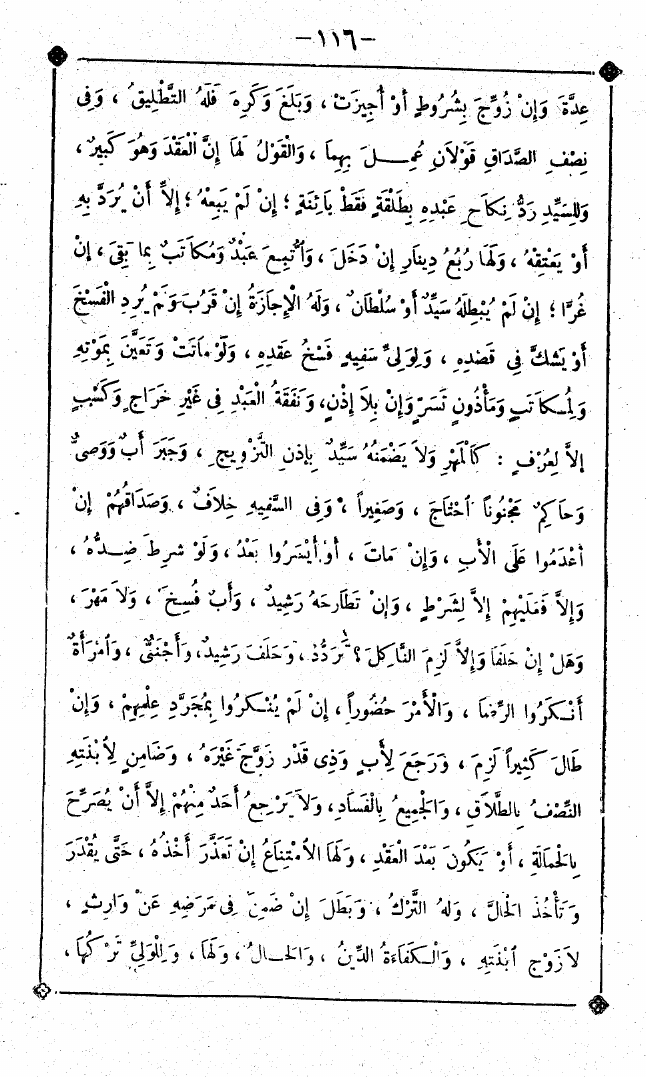 -١١٦-
عِدَّةَ وَإِنْ زُوِّجَ بِشُرُوطٍ أَوْ أُجِيزَتْ ، وَبَلَغَ وَكَرِهَ فَلَهُ التَّطْلِيقُ ، وَفِى
نِصْفِ الصَّدَاقِ قَوْلاَنِ عُمِلَ بِهِمَا ، وَالْقَوْلُ لَهَا إِنَّ الْعَقْدَ وَهُوَ كَبِيرٌ ،
وَلِلسَّيِّدِ رَدُّ نِكَاحِ عَبْدِهِ بِطَلْقَةٍ فَقَطْ بَائِنَةٍ ؛ إِنْ لَمْ يَبِعْهُ ؛ إِلاَّ أَنْ يُرَدَّ بِهِ
أَوْ يَعْتِقْهُ ، وَلَهَا رُبُعُ دِينَارٍ إِنْ دَخَلَ ، وَاتُّبِعَ عَبْدٌ وَمُكَاتَبٌ بِمَا بَقِىَ ، إِنْ
غُرَّا ؛ إِنْ لَمْ يُبْطِلْهُ سَيِّدٌ أَوْ سُلْطَانٌ ، وَلَهُ الْإِجَازَةُ إِنْ قَرُبَ وَلَمْ يُرِدِ الْفَسْخَ
أَوْ يَشُكَّ فِى قَصْدِهِ ، وَلِوَلِىِّ سَفِيهٍ فَسْخُ عَقْدِهِ ، وَلَوْ مَاتَتْ وَتَعَيَّنَ بِمَوْتِهِ
وَلِمُكَاتَبٍ وَمَأْذُونٍ تَسَرٍّ وَإِنْ بِلاَ إِذْنٍ، وَنَفَقَةُ الْعَبْدِ فِى غَيْرِ خَرَاجٍ وَكَسْبٍ
إِلاَّ لِعُرْفٍ : كَالْمَهْرِ وَلاَ يَضْمَنُهُ سَيِّدٌ بِإِذْنِ التَّزْوِيجِ ، وَجَبَرَ أَبٌ وَوَصِىٌّ
وَحَاكِمٌ مَجْنُوناً احْتَاجَ ، وَصَغِيراً ، وَفِى السَّفِيهِ خِلاَفٌ ، وَصَدَاقُهُمْ إِنْ
أَعْدَمُوا عَلَى الْأَبِ ، وَإِنْ مَاتَ ، أَوْ أَيْسَرُوا بَعْدُ ، وَلَوْ شَرِطَ ضِدُّهُ ،
وَإِلاَّ فَعَلَيْهِمْ إِلاَّ لِشَرْطٍ ، وَإِنْ تَطَارَحَهُ رَشِيدٌ ، وَأَبٌ فُسِخَ ، وَلاَ مَهْرَ ،
وَهَلْ إِنْ حَلَفَا وَإِلاَّ لَزِمَ النَّاكِلَ؟ تَرَدُّدٌ ، وَحَلَفَ رَشِيدٌ، وَأَجْنَبِىٌّ ، وَامْرَأَةٌ
أَنْكَرُوا الرِّضَا ، وَالْأَمْرَ حُضُوراً ، إِنْ لَمْ يُنْكِرُوا بِمُجَرَّدِ عِلْمِهِمْ ، وَإِنْ
طَالَ كَثِيراً لَزِمَ ، وَرَجَعَ لِأَبٍ وَذِى قَدْرٍ زَوَّجَ غَيْرَهُ ، وَضَامِنٍ لِابْنَتِهِ
النِّصْفُ بِالطَّلاَقِ ، وَالْجَمِيعُ بِالْفَسَادِ، وَلاَ يَرْجِعُ أَحَدٌ مِنْهُمْ إِلاَّ أَنْ يُصَرِّحَ
بِالْحَمَالَةِ ، أَوْ يَكُونَ بَعْدَ الْعَقْدِ ، وَلَهَا الاُمْتِنَاعُ إِنْ تَعَذَّرَ أَخْذُهُ ، حَتَّى يُقْدَرَ
وَتَأْخُذَ الْحَالَّ ، وَلَهُ التَّرْكُ ، وَبَطَلَ إِنْ ضَمِنَ فِى مَرَضِهِ عَنْ وَارِثٍ ،
لاَ زَوْجِ ابْنَتِهِ ، وَالْكَفَاءَةُ الدِّينُ ، وَالْحَالُ ، وَلَهَا ، وَلِلْوَلِىِّ تَرْكُهَا ،